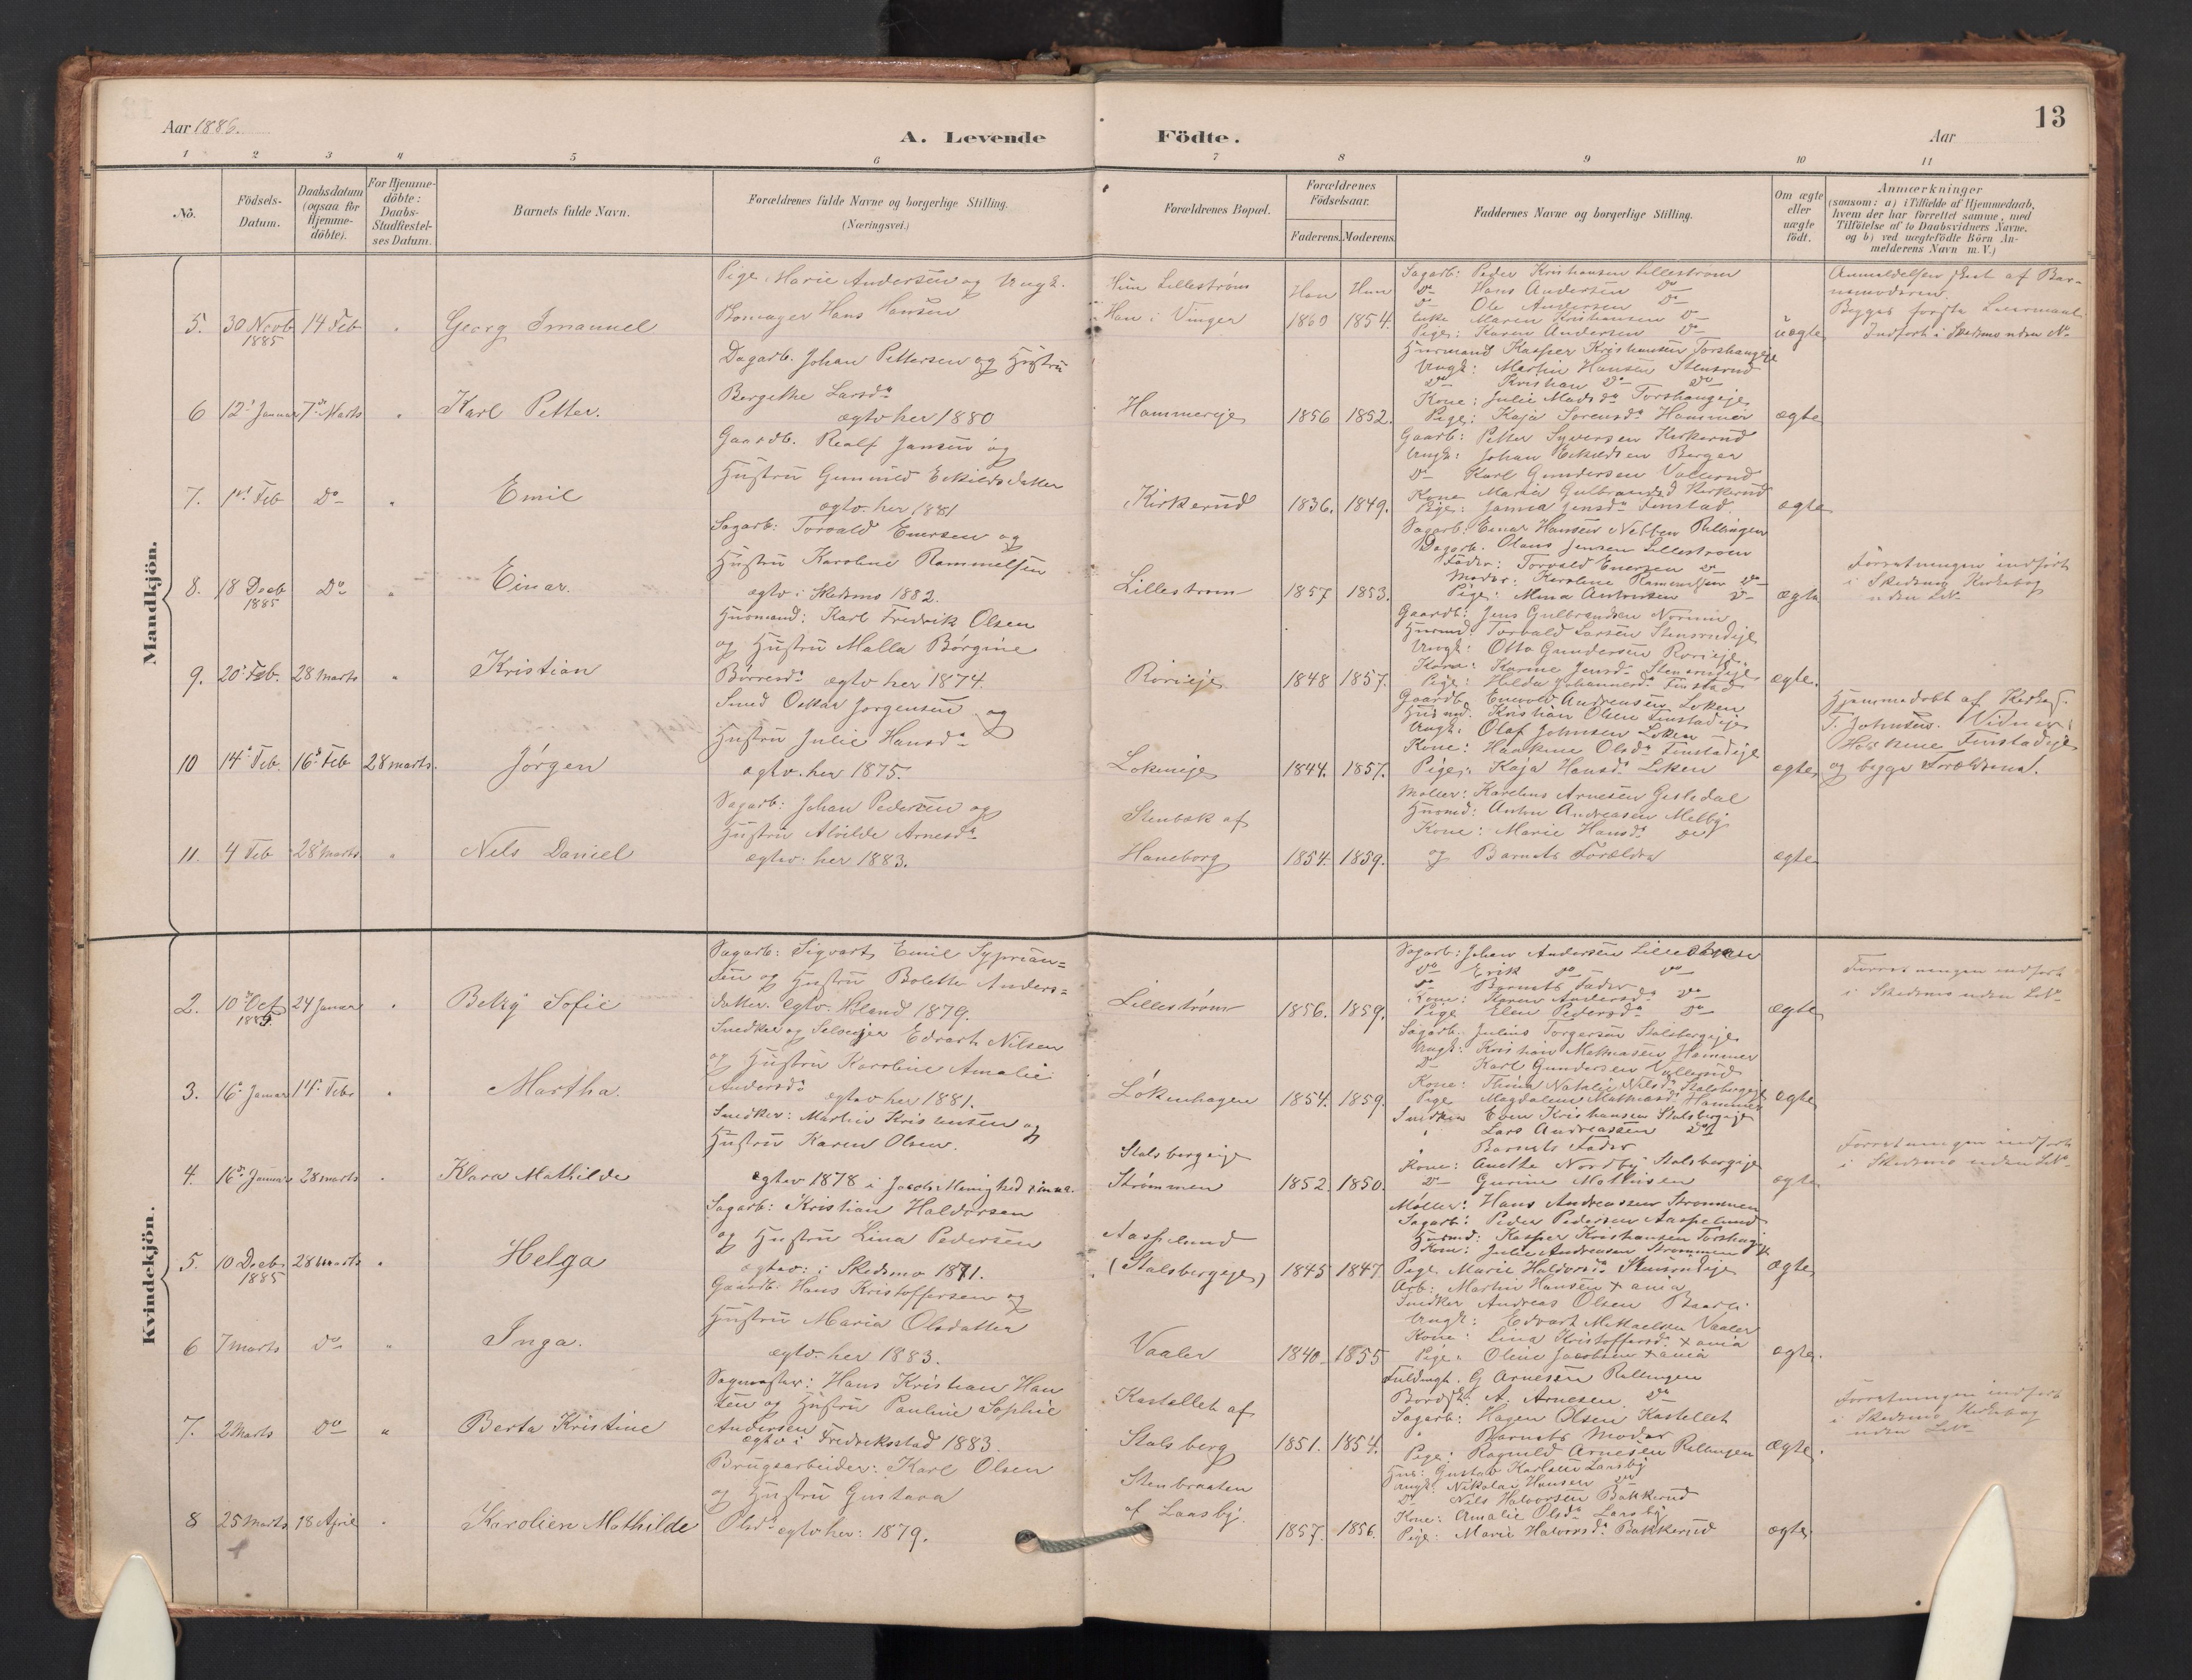 13
Aar 1886.
A. Levende Födte.
Aar
1 2 3 4 5 6 7 8 9 10 11
No.
Födsels-Datum.
Daabsdatum (ogsaa for Hjemme-döbte).
For Hjemme-döbte: Daabs-Stadfæstel-ses Datum.
Barnets fulde Navn.
Forældrenes fulde Navne og borgerlige Stilling.
(Næringsvei.)
Forældrenes Bopæl.
Forældrenes Födselsaar.
Faderens. Moderens.
Faddernes Navne og borgerlige Stilling.
Om ægte eller uægte födt.
Anmærkninger
(saasom: a) i Tilfælde af Hjemmedaab,
hvem der har forrettet samme, med
Tilföielse af to Daabsvidners Navne.
og b) ved uægtefödte Börn An-
melderens Navn m. V.)
Mandkjön.
5. 30 Novb 1885 14 Feb " Georg Imanuel
Pige Marie Andersen og Ungk.
Hans Hansen
Hun Lillestrøm
Han i Vinger
Han Hun
1860 1854.
Sagarb: Peder Kristiansen Lillestrøm
Do Hans Andersen Do
Do Ole Andersen Do
Enke Maren Kristiansen Do
Pige: Karen Andersen Do
uægte
Anmeldelsen skeet af Bar-
nemoderen.
Begges første Leiermaal
Indført i Skedsmo uden No
6 12 Januar 7de Marts " Karl Petter.
Dagarb. Johan Pettersen og Hustru
Bergethe Larsda
ægtv her 1880
Hammereje
1856 1852.
Husmand Kasper Kristiansen Torshaugeje
Ungk: Martin Hansen Stensrud
Do Kristian Do Do
Kone: Julie Madsda Torshaugeje
Pige: Kaja Sørensda Hammer
ægte
7. 1st Feb Do " Emil
Gaardb. Realf Jansen og
Hustru Gunnild Eskildsdatter
ægtv. her 1881
Kirkerud
1836. 1849.
Gaarb: Petter Syversen Kirkerud
Ungk: Johan Eskildsen Berger
Do Karl Gundersen Vallerud
Kone Maria Gulbrandsd Kirkerud
Pige: Janna Jensda Finstad.
ægte
8. 18 Decb 1885 Do " Einar.
Sagarb: Torvald Enersen og
Hustru Karoline Rammelsen
ægtv i Skedsmo 1882.
Lillestrøm
1857 1853.
Sagarb: Einar Hansen Nebben Rællingen
Dagarb. Olaus Jensen Lillestrøm
Fader: Torvald Enersen Do
Moder: Karoline Rammelsen Do
Pige: Mina Antonsen Do
ægte
Forretningen indført
i Skedsmo Kirkebog
uden No
9. 20 Feb. 28 Marts " Kristian
Husmand: Karl Fredrik Olsen
og Hustru Malla Børgine
Børresda ægtv her 1874.
Røriseje
1848 1857.
Gaardb: Jens Gulbrandsen Nordli
Husmd. Torvald Larsen Stensrudeje
Ungk: Otto Gundersen
Kone: Karine Jensda Stensrudeje
Pige: Hilda Johannesda Finstad
ægte.
10 14 Feb. 16 Feb 28 marts. Jørgen
Smed Oskar Jørgensen og
Hustru Julie Hansda
ægtv. her 1875.
Løkeneje
1844. 1857.
Gaardb Enevold Andreasen Løken
Husmd. Kristian Olsen Finstadeje
Ungk: Olaf Johnsen Løken
Kone: Haakine Olsda Finstadeje
Pige: Kaja Hansda Løken
ægte
Hjemmedøbt af Kirkes.
T. Johnsen. Vidner:
Haakine Finstadeje
og begge Forældrene.
11. 4 Feb 28 Marts " Nils Daniel
Sagarb: Johan Pedersen og
Hustru Alvilde Arnesda
ægtev: her 1883.
Stenbæk af
Haneborg
1854. 1859.
Møller: Karelius Arnesen Gisledal
Husmd: Anton Andreasen Melby
Kone: Marie Hansda Do
og Barnets Forældre
ægte
Kvindekjön.
2. 10 Oct 1885. 24 Januar " Betzy Sofie
Sagarb: Sigvart Emil Syprian=
sen og Hustru Bolette Anders=
datter. ægtv. Høland 1879.
Lillestrøm
1856. 1859.
Sagarb: Johan Andersen Lillestrøm
Do Erik Do Do
Do Barnets Fader
Kone: Karen Andersda Do
Pige Elen Pedersda Do
ægte
Forretningen indført
i Skedsmo uden No
3. 16 Januar 14 Feb. " Martha.
Snedker og Selveier Edvart Nilsen
og Hustru Karoline Amalie
Andersda ægtev her 1881.
Løkenhagen
1854. 1859.
Sagarb. Julius Torgersen Stalsbergeje
Ungk: Kristian Mathiasen Hammer
Do Karl Gundersen Vallerud
Kone: Thina Natalie Nilsda Stalsbergeje
Pige Magdalene Mathiasda Hammer
ægte
4. 16de Januar 28 marts " Klara Mathilde
Snedker: Martin Kristensen og
Hustru Karen Olsen.
ægtev 1878 i Jacobs Menighed
Stalsbergeje
Strømmen
1852. 1850.
Snedker Even Kristiansen Stalsbergeje
" Lars Andreassen Do
" Barnets Fader
Kone: Anette Nordby Stalsbergeje
Do Gurine Mathisen
ægte
Forretningen indført
i Skedsmo uden No
5. 10 Decb 1885 28 Marts " Helga
Sagarb: Kristian Haldorsen
og Hustru Lina Pedersen
ægtev: i Skedsmo 1871.
Aaspelund
(Stalsbergeje)
1845 1847
Møller: Hans Andreassen Strømmen
Sagarb: Peder Pedersen Aaspelund
Husmd: Kasper Kristiansen Torshaugeje
Kone: Julie Andreasen Strømmen
Pige Marie Haldorsda Stensrudeje
ægte
6 7 marts Do " Inga.
Gaardb. Hans Kristoffersen og
Hustru Maria Olsdatter
ægtv. her 1883.
Vaaler
1840 1855
Arb: Martin Hansen X ania
Snedker Andreas Olsen
Ungk: Edvart Mikkaelsen Vaaler
Kone: Lina Kristoffersda X ania
Pige. Oline Jacobsen X ania
ægte.
7. 2 Marts Do " Berta Kristine
Sagmester: Hans Kristian Han
sen og Hustru Pauline Sophie
Andersen
ægtev i Fredriksstad 1883.
Kastellet af
Stalsberg
1851. 1854.
Fuldmgt. G Arnesen Rællingen
A. Arnesen Do
Sagarb: Hagen Olsen Kastellet
" Barnets Moder
Pige: Ragnild Arnesen Rællingen
ægte.
Forretningen indført
i Skedsmo Kirkebog
uden No
8 25 marts 18 April " Karolien Mathilde
Brugsarbeider: Karl Olsen
og Hustru Gustava
Olsda ægtv her: 1879.
Stenbraaten
af Laasby.
1857. 1856.
Hus: Gustav Karlsen Laasby
Ungk: Nikolai Hansen Do
Do Nils Halvorsen Bakkerud
Kone: Amalie Olsda Laasby
Pige: Marie Halvorsda Bakkerud
ægte